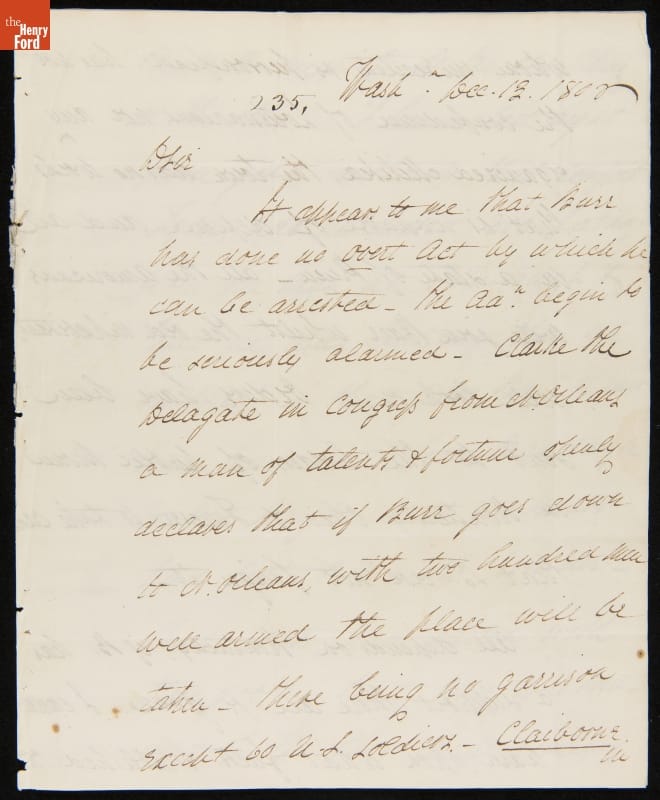 the
Henry
Ford
Washn Dec. 13. 1806
235,
DSir
It appears to me that Burr
has done no overt Act by which he
can be arrested - the adn begin to
be seriously alarmed - Clarke the
Delagate in Congress from N. Orleans
a man of talents & fortune openly
declares that if Burr goes down
to N. Orleans, with two hundred men
well armed the place will be
taken - there being no garrison
except 60 U S. soldiers. - Claiborne
in